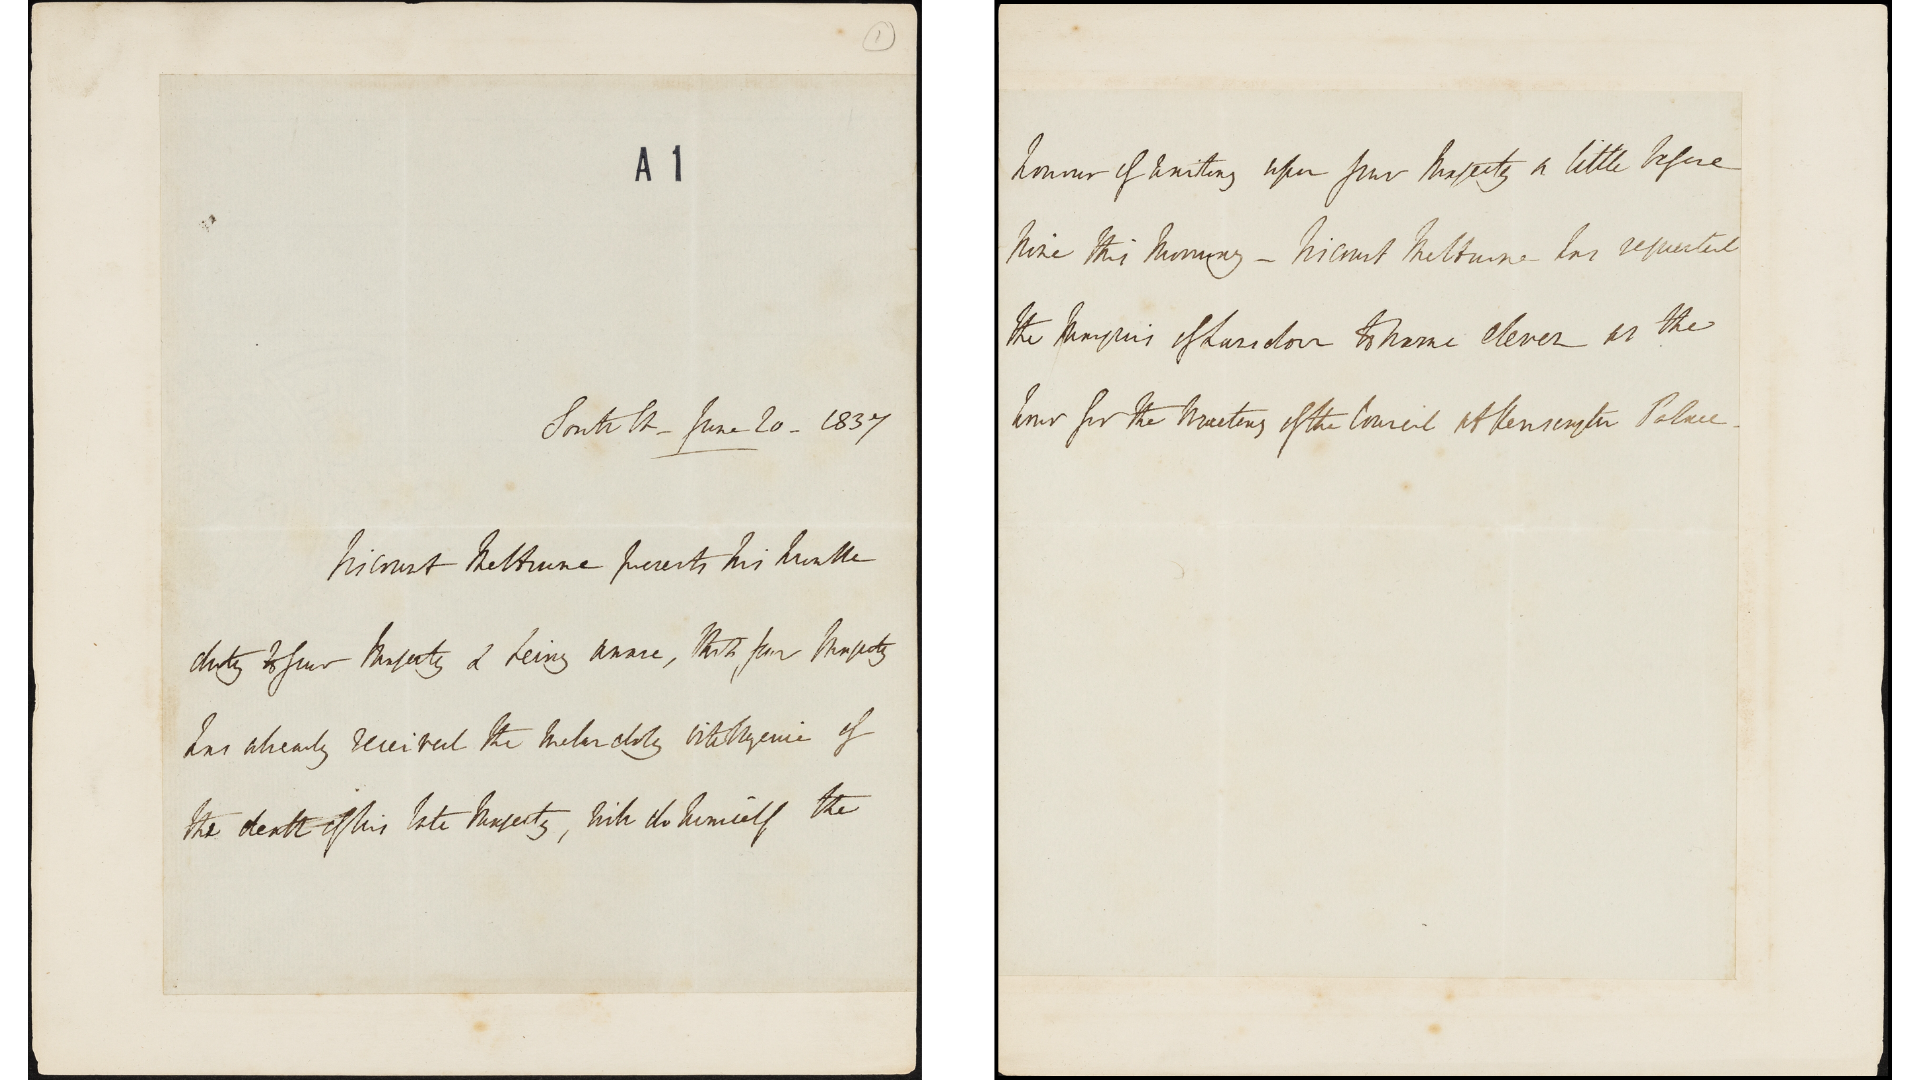 1
A 1
South St – June 20 – 1837
Viscount Melbourne presents his humble
duty to your Majesty & being aware, that your Majesty
has already received the melancholy intelligence of
the death of his late Majesty, will do himself the
honour of waiting upon your Majesty a little before
nine this morning – Viscount Melbourne has requested
the Marquis of Lansdown to name eleven as the
hour for the meeting of the Council at Kensington Palace –